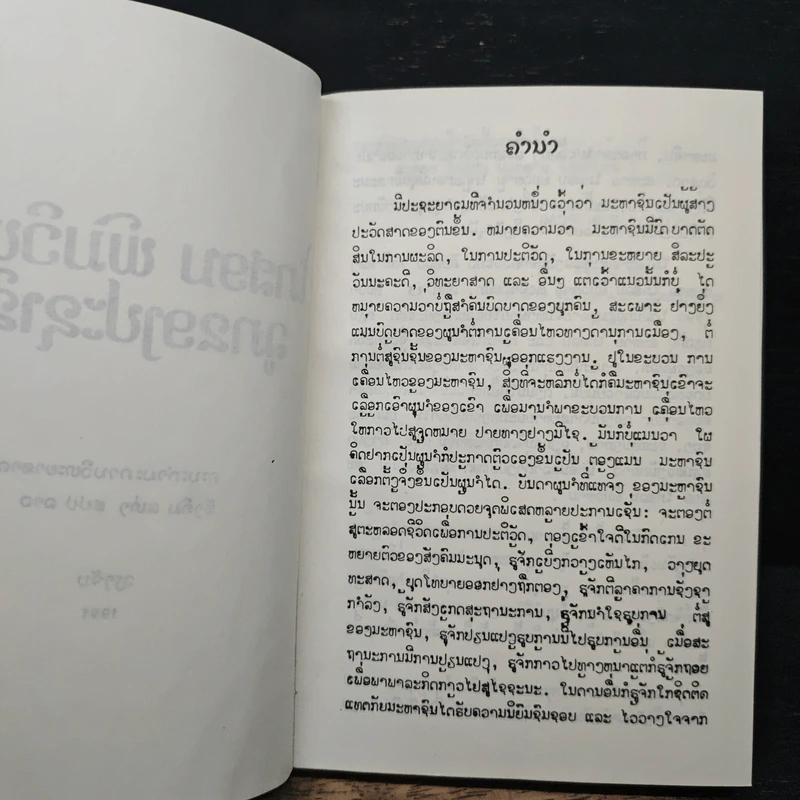 ຄຳນຳ
ມີປະຊະຍາເມທີຈຳນວນຫນຶ່ງເວົ້າວ່າ ມະຫາຊົນເປັນຜູ້ສ້າງ
ປະວັດສາດຂອງຕົນຂຶ້ນ. ຫມາຍຄວາມວ່າ ມະຫາຊົນມີບົດບາດຕັດ
ສິນໃນການຜະລິດ, ໃນການປະຕິວັດ, ໃນການຂະຫຍາຍ ສິລະປະ
ວັນນະຄະດີ, ວິທະຍາສາດ ແລະ ອື່ນໆ ແຕ່ເວົ້າແນວນັ້ນກໍບໍ່ ໄດ້
ຫມາຍຄວາມວ່າບໍ່ຖືສຳຄັນບົດບາດຂອງບຸກຄົນ, ສະເພາະ ຢ່າງຍິ່ງ
ແມ່ນບົດບາດຂອງຜູ້ນຳຕໍ່ການເຄື່ອນໄຫວທາງດ້ານການເມືອງ, ຕໍ່
ການຕໍ່ສູ້ຊົນຊັ້ນຂອງມະຫາຊົນຜູ້ອອກແຮງງານ. ຢູ່ໃນຂະບວນ ການ
ເຄື່ອນໄຫວຂອງມະຫາຊົນ, ສິ່ງທີ່ຈະຫລີກບໍ່ໄດ້ກໍຄືມະຫາຊົນເຂົາຈະ
ເລືອກເອົາຜູ້ນຳຂອງເຂົາ ເພື່ອມານຳພາຂະບວນການ ເຄື່ອນໄຫວ
ໃຫ້ກ້າວໄປສູ່ຈຸດຫມາຍ ປາຍທາງຢ່າງມີໄຊ. ມັນກໍບໍ່ແມ່ນວ່າ ໃຜ
ຄິດຢາກເປັນຜູ້ນຳກໍປະກາດຕົວເອງຂຶ້ນເປັນ ຕ້ອງແມ່ນ ມະຫາຊົນ
ເລືອກຕັ້ງຈຶ່ງຂຶ້ນເປັນຜູ້ນຳໄດ້. ບັນດາຜູ້ນຳທີ່ແທ້ຈິງ ຂອງມະຫາຊົນ
ນັ້ນ ຈະຕ້ອງປະກອບດ້ວຍຈຸດພິເສດຫລາຍປະການເຊັ່ນ: ຈະຕ້ອງຕໍ່
ສູ້ຕະຫລອດຊີວິດເພື່ອການປະຕິວັດ, ຕ້ອງເຂົ້າໃຈດີໃນກົດເກນ ຂະ
ຫຍາຍຕົວຂອງສັງຄົມມະນຸດ, ຮູ້ຈັກເບິ່ງກວ້າງເຫັນໄກ, ວາງຍຸດ
ທະສາດ, ຍຸດໂທບາຍອອກຢ່າງຖືກຕ້ອງ, ຮູ້ຈັກຕີລາຄາການຊັ່ງຊາ
ກຳລັງ, ຮູ້ຈັກສັງເກດສະຖານະການ, ຮູ້ຈັກນຳໃຊ້ຮູບການ ຕໍ່ສູ້
ຂອງມະຫາຊົນ, ຮູ້ຈັກປ່ຽນແປງຮູບການນີ້ໄປຮູບການອື່ນ ເມື່ອສະ
ຖານະການມີການປ່ຽນແປງ, ຮູ້ຈັກກ້າວໄປທາງຫນ້າແຕ່ກໍຮູ້ຈັກຖອຍ
ເພື່ອພາພາລະກິດກ້າວໄປສູ່ໄຊຊະນະ. ໃນດ້ານອື່ນກໍຮູ້ຈັກໃກ້ຊິດຕິດ
ແທດກັບມະຫາຊົນໄດ້ຮັບຄວາມນິຍົມຊົມຊອບ ແລະ ໄວ້ວາງໃຈຈາກ